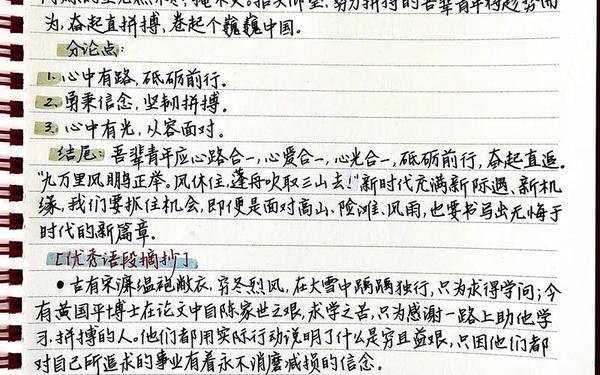 为,奋起直拼搏,卷起个巍巍中国。
分论点:
1. 心中有路,砥砺前行。
2. 勇秉信念,坚韧拼搏。
3. 心中有光,从容面对。
结尾:吾辈青年应心路合一,心爱合一,心光合一,砥砺前行,奋起直追。
"九万里风鹏正举。风休住,蓬舟吹取三山去!"新时代充满新际遇、新机
缘,我们要抓住机会,即便是面对高山、险滩、风雨,也要书写出无悔于
时代的新篇章。
[优秀语段摘抄]
• 古有宋濂缊袍敝衣,穷冬烈风,在大雪中踽踽独行,只为求得学问;今
有黄国平博士在论文中自陈家世之艰,求学之苦,只为感谢一路上助他学
习,拼搏的人。他们都用实际行动说明了什么是穷且益艰,只因他们都
对自己所追求的事业有着永不消磨减损的信念。